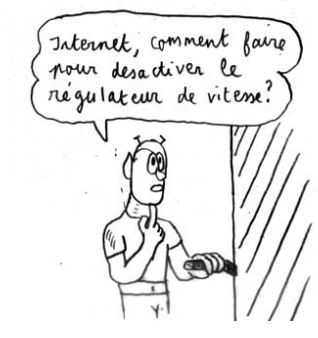 Internet, comment faire
pour desactiver le
régulateur de vitesse?